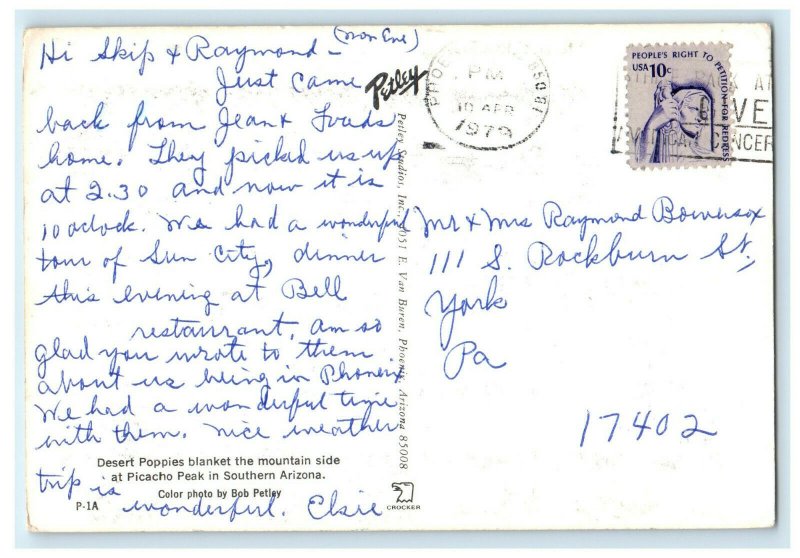 Hi Skip & Raymond - (Mon Eve)
Just came
back from Jean &
home. They picked us up
at 2.30 and now it is
10 oclock. We had a wonderful
tour of Sun City, dinner
this evening at Bell
restaurant, am so
glad you wrote to them
about us being in Phoenix
We had a wonderful time
with them. nice weather
trip is
wonderful. Elsie
Desert Poppies blanket the mountain side
at Picacho Peak in Southern Arizona.
Color photo by Bob Petley
P-1A
Petley
Petley Studios, Inc., 4051 E. Van Buren, Phoenix, Arizona 85008
CROCKER
PM
10 APR
1979
PEOPLE'S RIGHT TO PETITION FOR REDRESS
USA 10c
Mr & Mrs Raymond Bowersox
111 S. Rockburn St,
York
Pa
17402